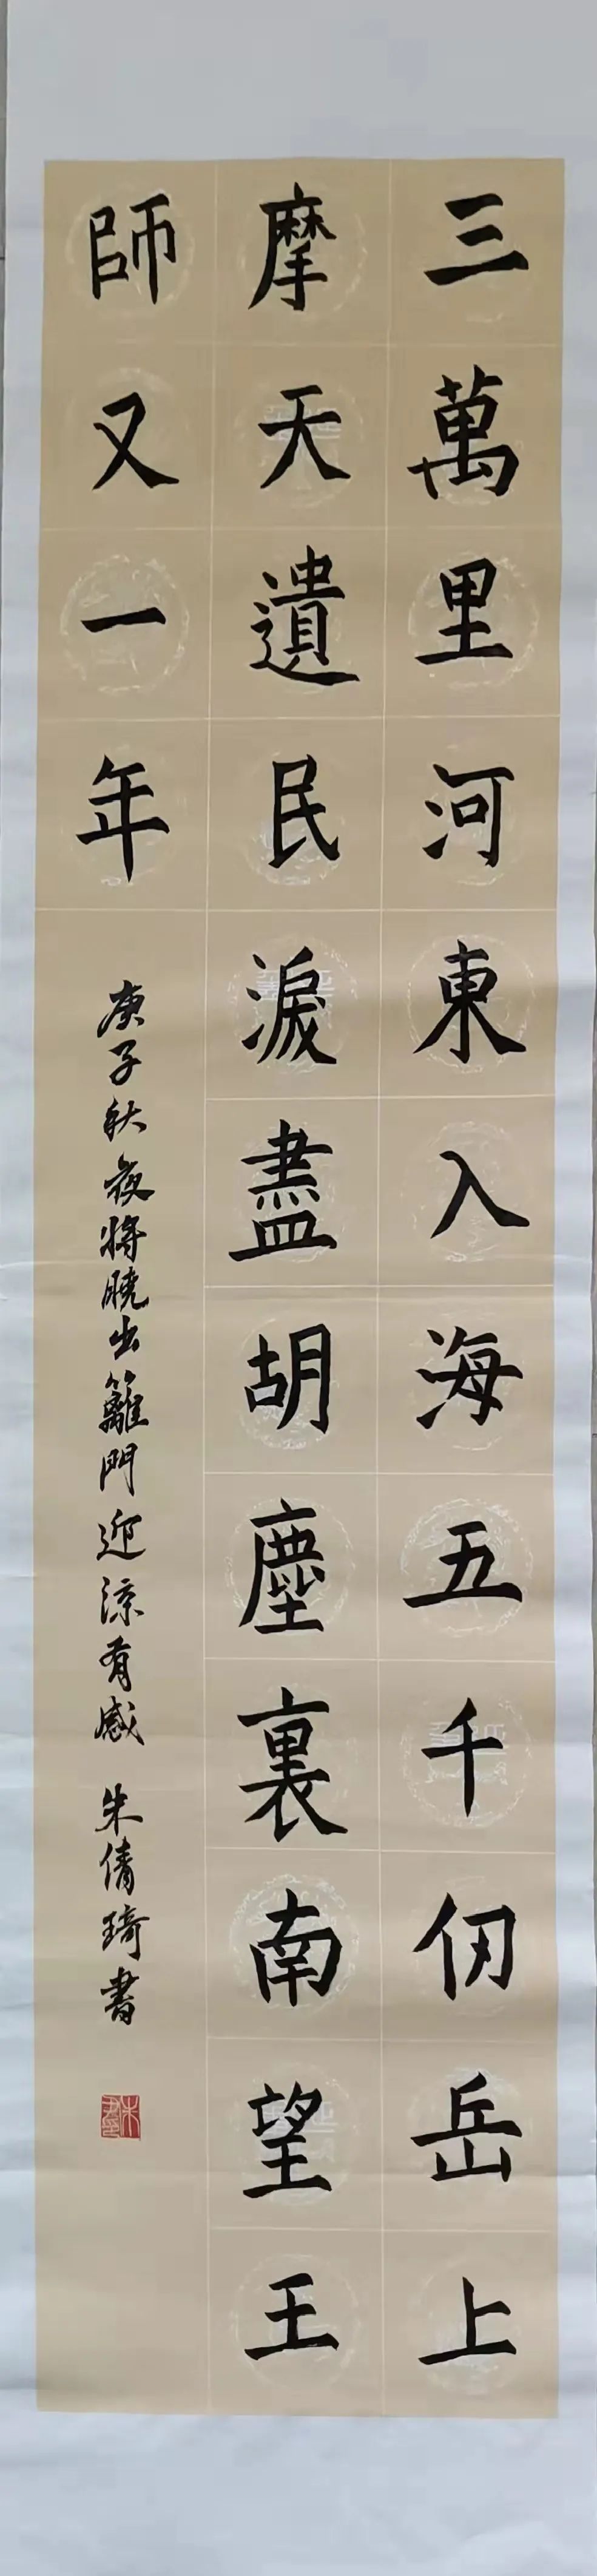 三萬里河東入海五千仞岳上
摩天遺民淚盡胡塵裏南望王
師又一年
庚子秋夜將曉出籬門迎涼有感 朱倩琦書